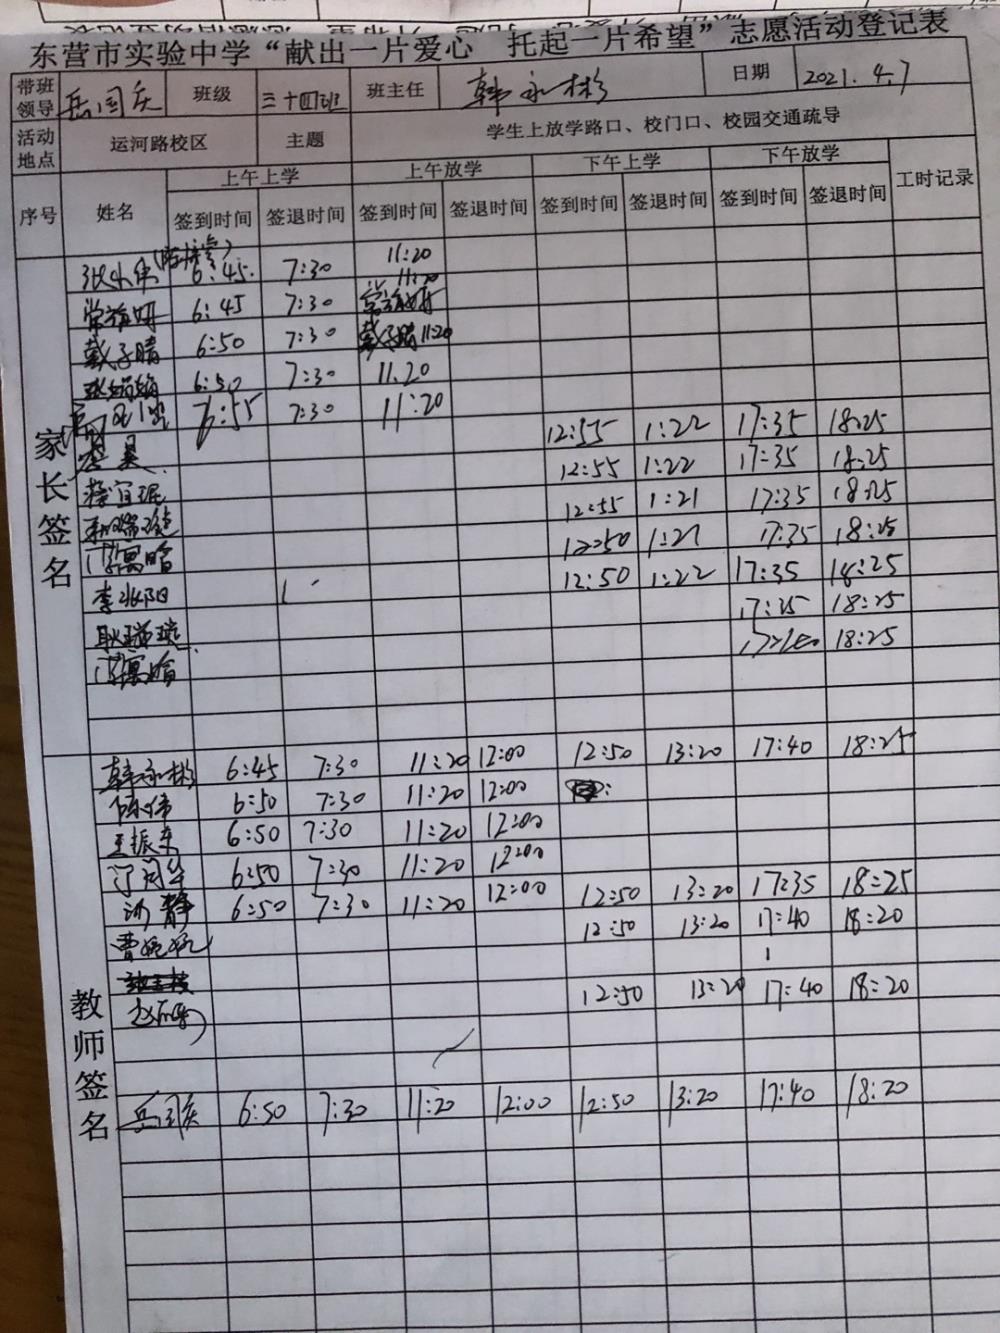 东营市实验中学“献出一片爱心 托起一片希望”志愿活动登记表
带班领导 岳国庆 班级 三十四班 班主任 韩永彬 日期 2021.4.7
活动地点 运河路校区 主题 学生上放学路口、校门口、校园交通疏导
序号 姓名 上午上学 上午放学 下午上学 下午放学 工时记录
签到时间 签退时间 签到时间 签退时间 签到时间 签退时间 签到时间 签退时间
家长签名
6:45 7:30 11:20
11:20
6:45 7:30
戴子晴 6:50 7:30 戴子晴 11:20
6:50 7:30 11.20
6:55 7:30 11:20
12:55 1:22 17:35 18:25
蔡宜琨 12:55 1:22 17:35 18:25
12:55 1:21 17:35 18:25
12:50 1:21 17:35 18:25
李兆阳 12:50 1:22 17:35 18:25
耿瑞瑞 17:25 18:25
18:25
教师签名
韩永彬 6:45 7:30 11:20 12:00 12:50 13:20 17:40 18:25
陈伟 6:50 7:30 11:20 12:00
王振东 6:50 7:30 11:20 12:00
6:50 7:30 11:20 12:00
静 6:50 7:30 11:20 12:00 12:50 13:20 17:35 18:25
曹 12:50 13:20 17:40 18:20
赵 12:50 13:20 17:40 18:20
岳国庆 6:50 7:30 11:20 12:00 12:50 13:20 17:40 18:20